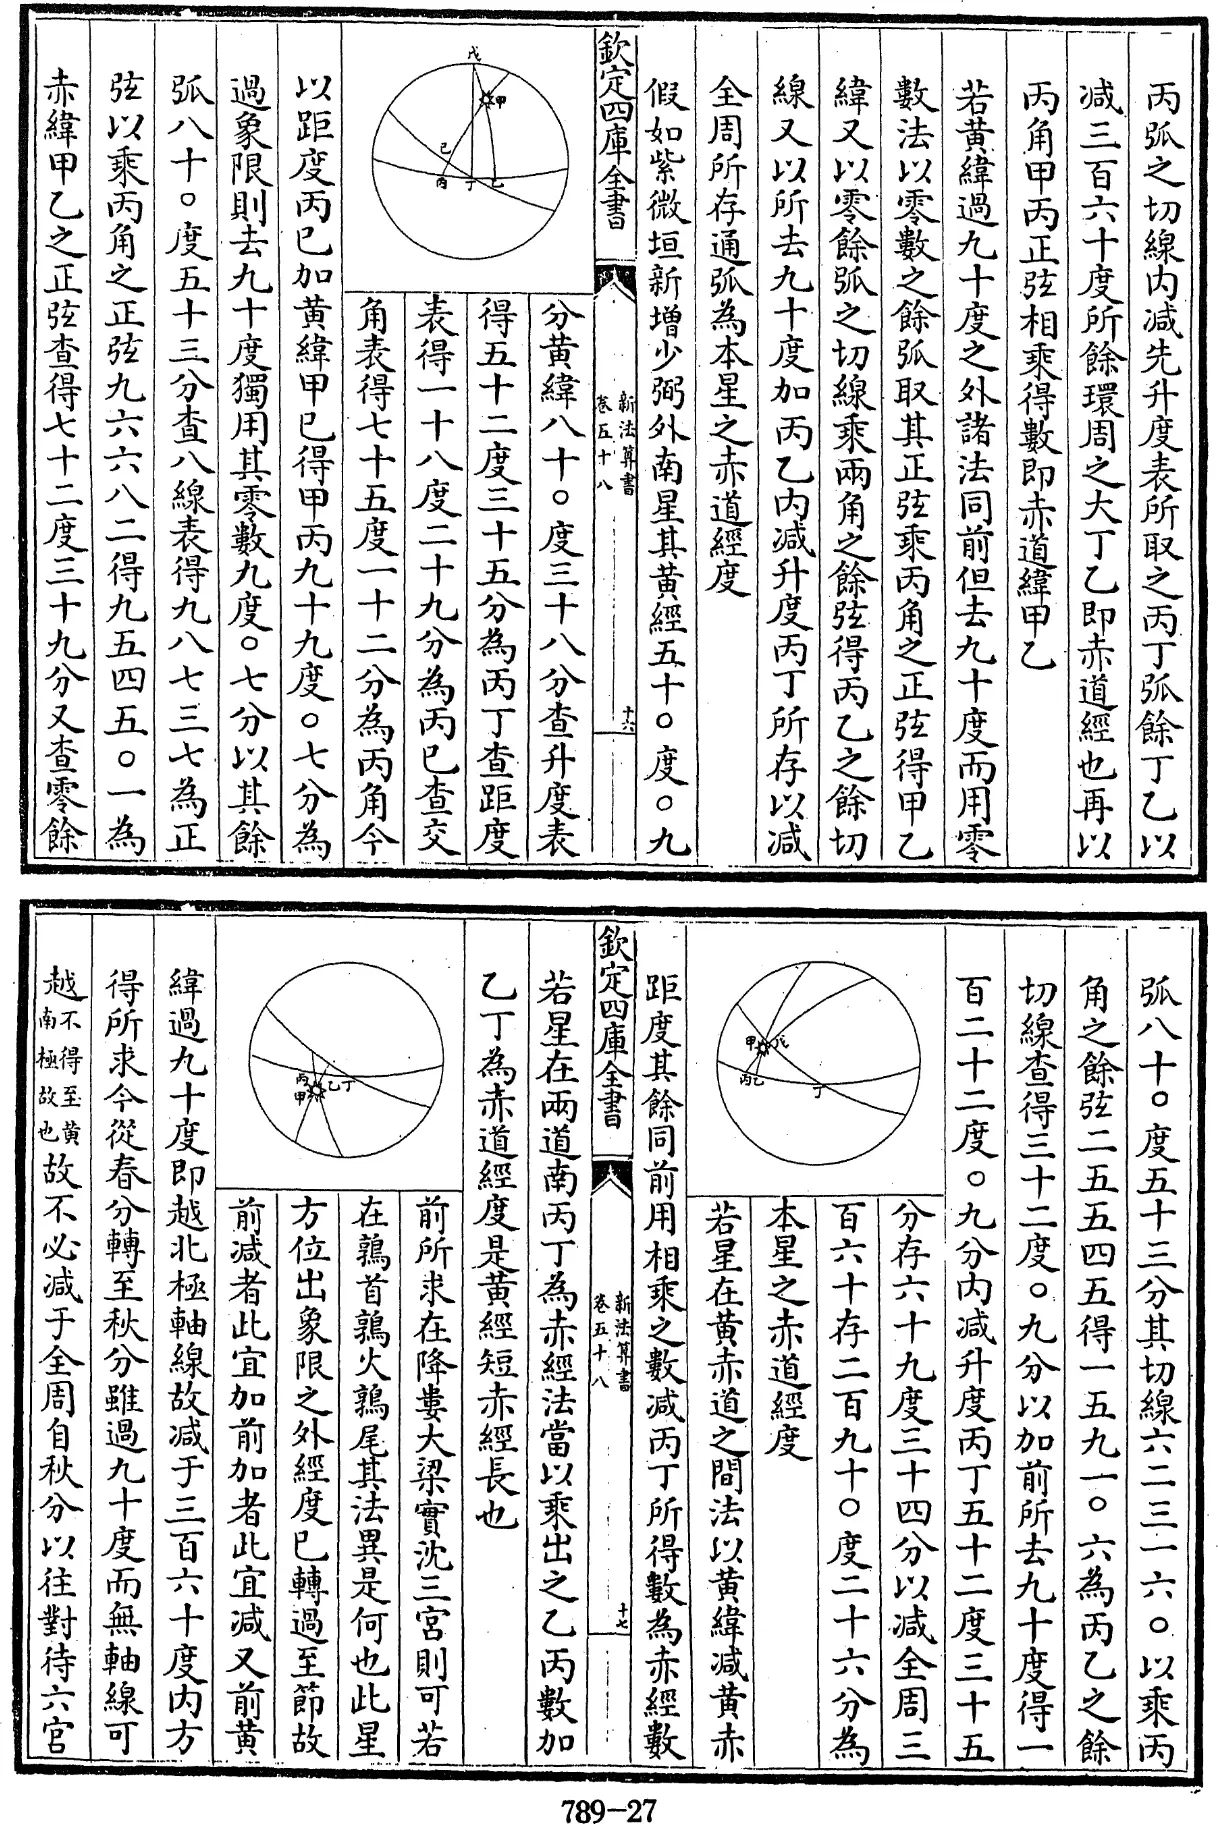 丙弧之切線内減先升度表所取之丙丁弧餘丁乙以
減三百六十度所餘環周之大丁乙即赤道經也再以
丙角甲丙正弦相乘得數即赤道緯甲乙
若黄緯過九十度之外諸法同前但去九十度而用零
數法以零數之餘弧取其正弦乘丙角之正弦得甲乙
緯又以零餘弧之切線乘兩角之餘弦得丙乙之餘切
線又以所去九十度加丙乙内減升度丙丁所存以減
全周所存通弧為本星之赤道經度
假如紫微垣新增少弼外南星其黄經五十○度○九
欽定四庫全書
新法算書
卷五十八
十六
戊
甲
己
丙
丁
乙
分黄緯八十○度三十八分查升度表
得五十二度三十五分為丙丁查距度
表得一十八度二十九分為丙已查交
角表得七十五度一十二分為丙角今
以距度丙已加黄緯甲已得甲丙九十九度○七分為
過象限則去九十度獨用其零數九度○七分以其餘
弧八十○度五十三分查八線表得九八七三七為正
弦以乘丙角之正弦九六六八二得九五四五○一為
赤緯甲乙之正弦查得七十二度三十九分又查零餘
弧八十○度五十三分其切線六二三一六○以乘丙
角之餘弦二五五四五得一五九一○六為丙乙之餘
切線查得三十二度○九分以加前所去九十度得一
百二十二度○九分内減升度丙丁五十二度三十五
甲
戊
丙
乙
丁
分存六十九度三十四分以減全周三
百六十存二百九十○度二十六分為
本星之赤道經度
若星在黄赤道之間法以黄緯減黄赤
距度其餘同前用相乘之數減丙丁所得數為赤經數
欽定四庫全書
新法算書
卷五十八
十七
若星在兩道南丙丁為赤經法當以乘出之乙丙數加
乙丁為赤道經度是黄經短赤經長也
丙
甲
乙
丁
前所求在降婁大梁實沈三宮則可若
在鶉首鶉火鶉尾其法異是何也此星
方位出象限之外經度已轉過至節故
前減者此宜加前加者此宜減又前黄
緯過九十度即越北極軸線故減于三百六十度内方
得所求今從春分轉至秋分雖過九十度而無軸線可
越不得至黄南極故也故不必減于全周自秋分以往對待六宮
789-27